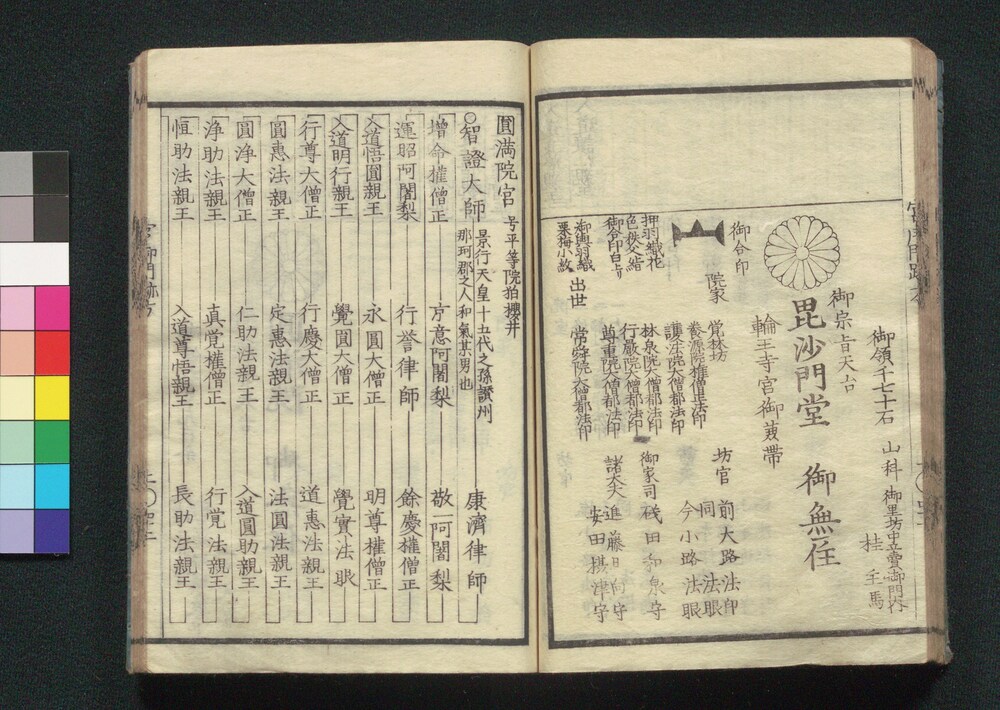 御領千七十石
山科
御里坊中立賣御門内
桂主馬
御宗旨天台
毘沙門堂
御無住
輪王寺宮御兼帯
御合印
院家
覚林坊
養源院権僧正法印
護法院大僧都法印
林泉院大僧都法印
行厳院大僧都法印
尊重院大僧都法印
出世
坊官
前大路法印
同
法眼
今小路法眼
御家司
磯田和泉守
諸大夫
進藤日向守
安田摂津守
押羽織花
色秩父絹
御合印白上り
御輿羽織
栗梅小紋
圓満院宮
号平等院
○智證大師
景行天皇十五代之孫讃州
那珂郡之人和氣某男也
康濟律師
増命権僧正
京意阿闍梨
敬一阿闍梨
運昭阿闍梨
行誉律師
餘慶権僧正
入道悟圓親王
永圓大僧正
明尊権僧正
入道明行親王
覺圓大僧正
覺實法眼
行尊大僧正
行慶大僧正
道惠法親王
圓惠法親王
定惠法親王
法圓法親王
圓浄大僧正
仁助法親王
入道圓助親王
浄助法親王
真覚権僧正
行覚法親王
恒助法親王
入道尊悟親王
長助法親王